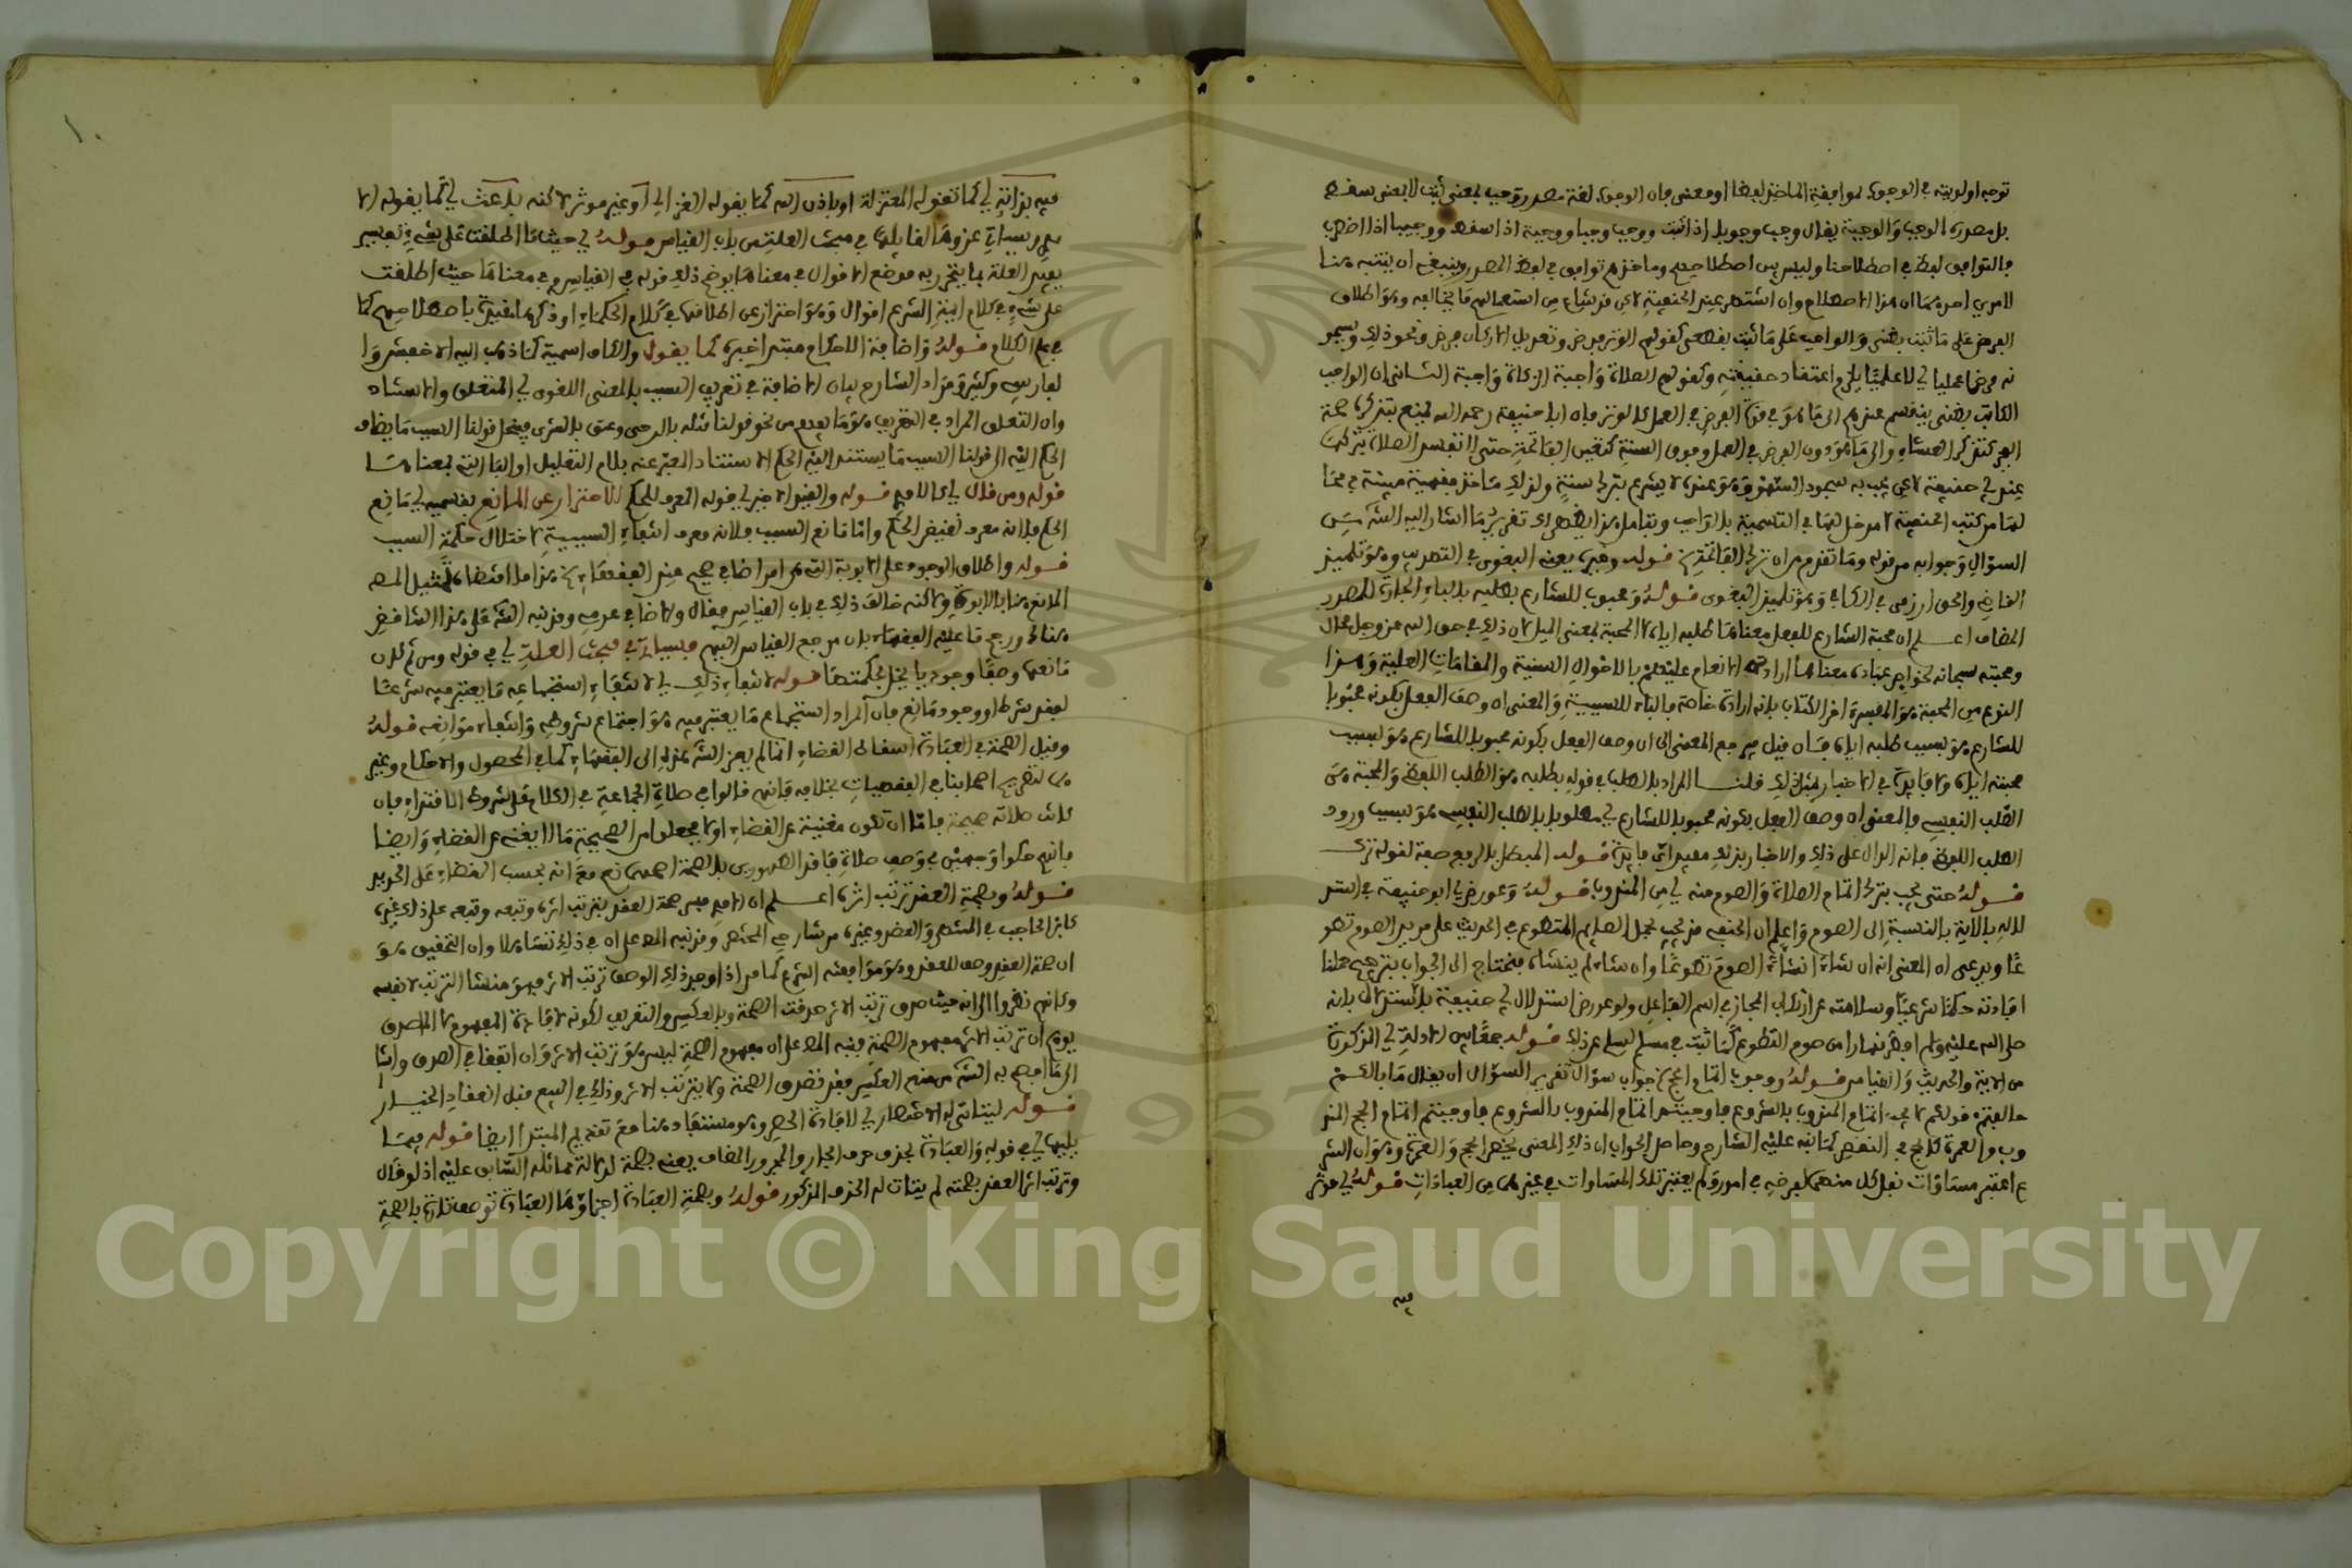 توجه اولويته في الوجوب لموافقة الماخذ لفظا او معنى فان الوجوب لغة مصدر وجب بمعنى ثبت لا بمعنى سقط
بل مصدره الوجب والوجبة يقال وجب وجوبا اذا ثبت ووجب وجبا ووجبة اذا سقط ووجيبا اذا اضطرب
فالتوافق لفظي في اصطلاحنا وليس بين اصطلاحهم وماخذهم توافق في لفظ المصدر وينبغي ان يتنبه هنا
لامرين احدهما ان هذا الاصطلاح وان اشتهر عند الحنفية لكن قد شاع من استعمالهم ما يخالفه وهو اطلاق
الفرض على ما ثبت بظني والواجب على ما ثبت بقطعي كقولهم الوتر فرض وتعديل الاركان فرض ونحو ذلك ويسمو
نه فرضا عمليا اي لا علميا يلزم اعتقاد حقيقته وكقولهم الصلاة واجبة الزكاة واجبة الثاني ان الواجب
الثابت بظني ينقسم عندهم الى ما هو في قوة الفرض في العمل كالوتر فان ابا حنيفة رحمه الله يمنع بتذكره صحة
الفجر كتذكر العشاء والى ما هو دون الفرض في العمل وفوق السنة كتعين الفاتحة حتى لا تفسد الصلاة بتركها
عند ابي حنيفة لكن يجب به سجود السهو وهو عنده لا يشرع بترك سنة ولذلك ماخذ فقهية مبينة في محا
لها من كتب الحنفية لا مدخل لها في التسمية بالواجب وبتامل هذا يظهر لك تقرير ما اشار اليه الشـ من
السؤال وجوابه من قوله وما تقدم من ان ترك الفاتحة الخ قوله وغيره يعني البغوي في التهذيب وهو تلميذ
القاضي والخوارزمي في الكافي وهو تلميذ البغوي قوله ومحبوب للشارع بطلبه بالباء الجارة للمصدر
المضاف اعلم ان محبة الشارع للفعل معناها طلبه اياه لا المحبة بمعنى الميل لان ذلك في حق الله عز وجل محال
ومحبته سبحانه لخواص عباده معناها ارادته الانعام عليهم بالاحوال السنية والمقامات العلية وهذا
النوع من المحبة هو المفسر في اخر الكتاب بانه ارادة خاصة فالباء للسببية والمعنى ان وصف الفعل بكونه محبوبا
للشارع هو بسبب طلبه اياه فان قيل يرجع المعنى الى ان وصف الفعل بكونه محبوبا للشارع هو بسبب
محبته اياه ولا فايدة في الاخبار بمثل ذلك قلنـا المراد بالطلب في قوله بطلبه هو الطلب اللفظي والمحبة هي
الطلب النفسي فالمعنى ان وصف الفعل بكونه محبوبا للشارع اي مطلوبا بالطلب النفسي هو بسبب ورود
الطلب اللفظي فانه الدال على ذلك والاخبار بذلك مفيد اتم فايدة قوله المبطل بالرفع صفة لقوله ترك
قوله حتى يجب بترك اتمام الصلاة والصوم منه اي من المندوب قوله وعورض اي ابو حنيفة في استد
لاله بالاية بالنسبة الى الصوم واعلم ان الحنفي قد يجيب بحمل الصايم المتطوع في الحديث على مريد الصوم تطو
عا ويدعي ان المعنى انه ان شاء انشاء الصوم تطوعا وان شاء لم ينشئه فنحتاج الى الجواب بترجيح حملنا
افادته حكما شرعيا وسلامته عن ارتكاب المجاز في اسم الفاعل ولو عورض استدلال ابي حنيفة بالاستدلال بانه
صلى الله عليه وسلم افطر نهارا من صوم التطوع كما ثبت في مسلم لسلم عن ذلك قوله جمعا بين الادلة اي المذكورة
من الاية والحديث والقياس قوله ووجوب اتمام الحج الخ جواب سؤال تقرير السؤال ان يقال ما بالكم
خالفتم قولكم لا يجب اتمام المندوب بالشروع فاوجبتم اتمام المندوب بالشروع فاوجبتم اتمام الحج المند
وب والعمرة كالحج في النقض كما نبه عليه الشارح وحاصل الجواب ان ذلك لمعنى يخص الحج والعمرة وهو ان الشر
ع اعتبر مساواة نفل كل منهما لفرضه في امور ولم يعتبر تلك المساوات في غيرهما من العبادات قوله اي مؤثر
فيه
فيه بذاته اي كما تقوله المعتزلة او باذن الله كما يقوله الغزالي او غير موثر لكنه باعث اي كما يقوله الا
مدي وسياتي عزوها لقائليها في مبحث العلة من باب القياس قوله اي حيثما اطلقت على شيء تفسير
يفيد العلة بما يتحرر به موضع الاقوال في معناها يوضح ذلك قوله في القياس وفي معناها حيث اطلقت
على شيء في كلام ايمة الشرع اقوال وهو احتراز عن اطلاقها في كلام الحكماء او ذكرها مقيدة باصطلاحهم كما
في علم الكلام قوله واضافة الاحكام مبتدا خبره كما يقول والكاف اسمية كما ذهب اليه الاخفش وا
لفارسي وكثير ومراد الشارح بيان الاضافة في تعريف السبب بالمعنى اللغوي اي التعلق والاسناد
وان التعلق المراد في التعريف هو ما يفهم من نحو قولنا قتله بالرمي وعتق بالشرى فينحل قولنا السبب ما يضاف
الحكم اليه الى قولنا السبب ما يستند اليه الحكم الاستناد المعبر عنه بلام التعليل او الباء التي بمعناها
قوله ومن قال باعلام قوله والقيد الاخير اي قوله المعرف للحكم للاحتراز عن المانع بقسميه اي مانع
الحكم فلانه معرف نقيض الحكم واما مانع السبب فلانه معرف انتفاء السببية لاختلال حكمة السبب
قوله واطلاق الوجود على الابوة التي هي امر اضافي صحيح عند الفقهاء الخ هذا ما اقتضاه تمثيل المصـ
المانع هنا بالابوة ولكنه خالف ذلك في باب القياس فقال والاضافي عدمي وقد نبه الشـ على هذا التناقض
هناك ورجح ما عليه الفقهاء بان مرجع القياس اليهم وسياتي في مبحث العلة اي في قوله ومن ثم كان
مانعها وصفا وجوديا يخل بحكمتها قوله لانتفاء ذلك اي لانتفاء استجماعه ما يعتبر فيه شرعا
لفقد شرط او وجود مانع فان المراد استجماع ما يعتبر فيه هو اجتماع شروطه وانتفاء موانعه قوله
وقيل الصحة في العبادة اسقاط القضاء انما لم يعز الشـ هذا الى الفقهاء كما في المحصول والاحكام وغير
هما لتصريح اصحابنا في الفقهيات بخلافه فانهم قالوا في صلاة الجماعة في الكلام على شروط الاقتداء فان
كانت صلاته صحيحة فاما ان تكون مغنية عن القضاء اولا فجعلوا من الصحيحة ما لا يغني عن القضاء وايضا
فانهم حكوا وجهين في وصف صلاة فاقد الطهورين بالصحة اصحهما نعم مع انه يجب القضاء على الجديد
قوله وبصحة العقد ترتب اثره اعلم ان الامدي فسر صحة العقد بترتب اثره وتبعه وتبعه على ذلك غيره
كابن الحاجب في المنتهى والعضد وغيره من شارحي المختصر وقد نبه المصـ على ان في ذلك تساهلا وان التحقيق هو
ان صحة العقد وصف للعقد وهو موافقته الشرع كما مر اذا وجد ذلك الوصف ترتب الاثر فهو منشا الترتب لا نفسه
وكانهم نظروا الى انه حيث صدق ترتب الاثر صدقت الصحة وبالعكس والتعريف لكونه لافادة المفهوم لا الماصدق
يوهم ان ترتب الاثر مفهوم الصحة فنبه المصـ على ان مفهوم الصحة ليس هو ترتب الاثر وان اتفقا في الصدق واشا
الى ما افصح به الشـ من منع العكس فقد تصدق الصحة ولا يترتب الاثر وذلك في البيع قبل انقضاء الخيـار
قوله ليتاتى له الاختصار اي لافادة الحصر وهو مستفاد هنا مع تقديم المبتدا ايضا قوله فيما
يليها اي في قوله والعبادة بحذف حرف الجار والمجرور المضاف يعني بصحة لدلالة مماثله السابق عليه اذ لو قال
وترتب اثر العقد بصحته لم يتات له الحذف المذكور قوله وبصحة العبادة اجزاؤها العبادة توصف تارة بالصحة
Copyright © King Saud University
1957